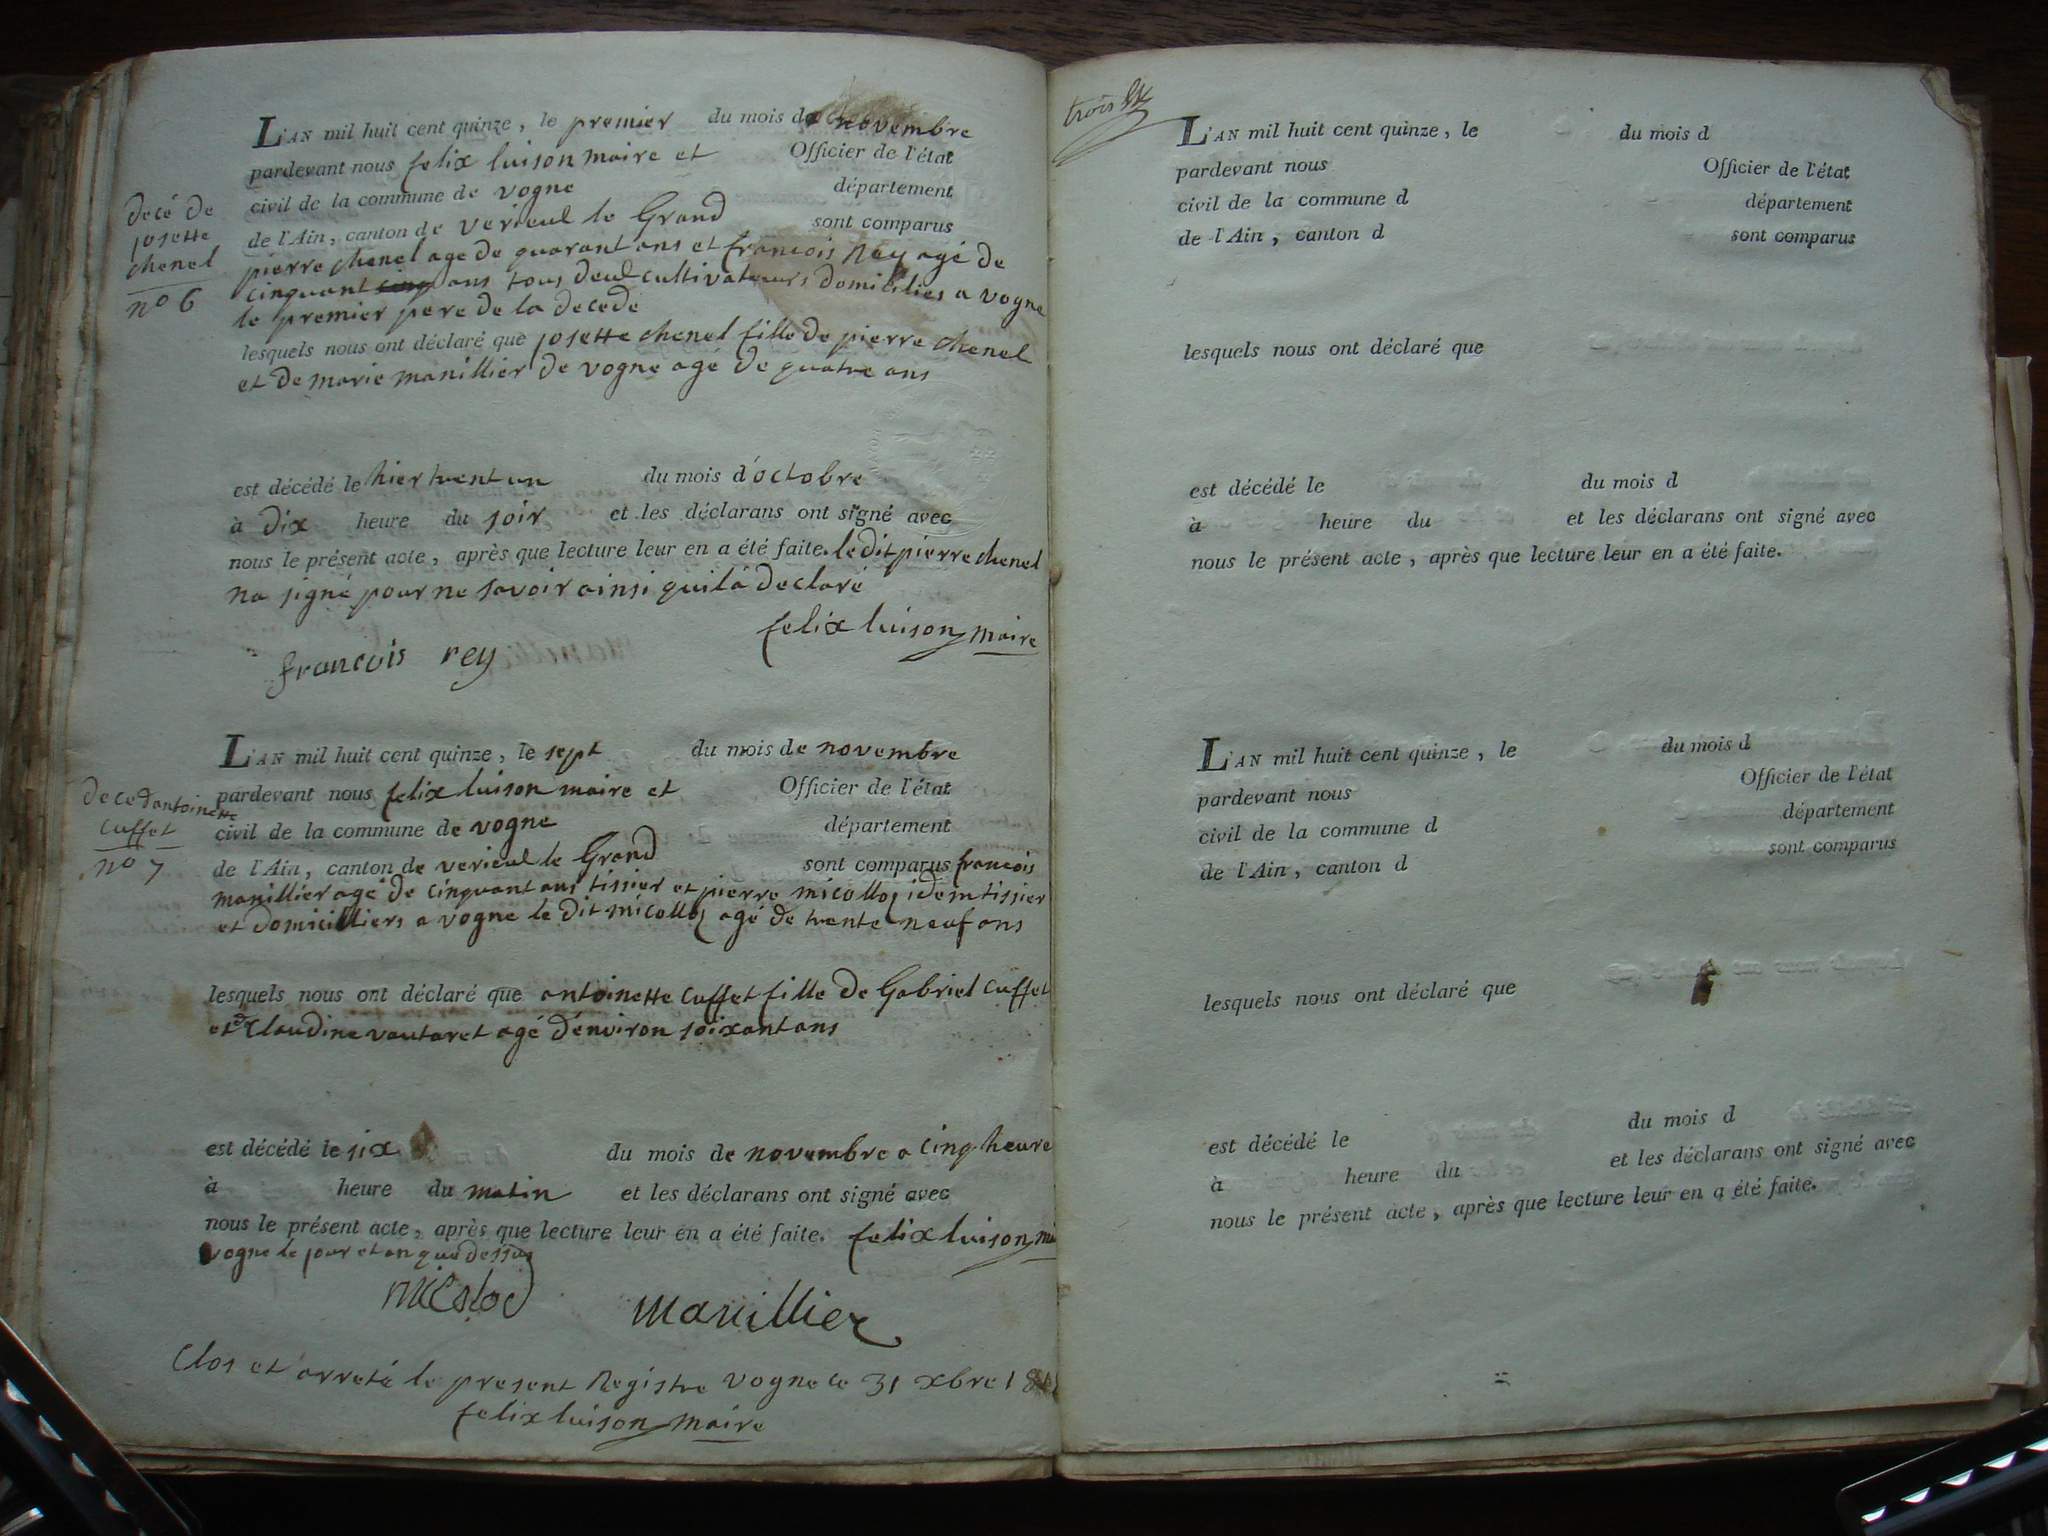 L'AN mil huit cent quinze, le premier du mois de novembre
pardevant nous felix luison maire et Officier de l'état
civil de la commune de vogne département
de l'Ain, canton de verieul le Grand sont comparus
decé de
josette
chenel
no 6
pierre chenel age de quarant ans et francois Rey agé de
cinquant cinq ans tous deul cultivateurs domicilies a vogne
le premier pere de la decede
lesquels nous ont déclaré que josette chenel fille de pierre chenel
et de marie manillier de vogne agé de quatre ans
est décédé le hier trent un du mois d'octobre
à dix heure du soir et les déclarans ont signé avec
nous le présent acte, après que lecture leur en a été faite. le dit pierre chenel
na signé pour ne savoir ainsi quila declaré
felix luison maire
francois rey
L'AN mil huit cent quinze, le sept du mois de novembre
pardevant nous felix luison maire et Officier de l'état
civil de la commune de vogne département
de l'Ain, canton de verieul le Grand sont comparus francois
deced antoinette
cuffet
no 7
manillier agé de cinquant ans tissier et pierre micollo idem tissier
et domicilliers a vogne le dit micollo agé de trente neuf ans
lesquels nous ont déclaré que antoinette cuffet fille de Gabriel cuffet
et de Claudine vautaret agé d'environ soixant ans
est décédé le six du mois de novembre a cinq heure
à heure du matin et les déclarans ont signé avec
nous le présent acte, après que lecture leur en a été faite. felix luison
vogne le jour et an que dessus
manillier
Clos et arreté le present Registre vogne ce 31 xbre
felix luison maire
trois
L'AN mil huit cent quinze, le du mois d
pardevant nous Officier de l'état
civil de la commune d département
de l'Ain, canton d sont comparus
lesquels nous ont déclaré que
est décédé le du mois d
à heure du et les déclarans ont signé avec
nous le présent acte, après que lecture leur en a été faite.
L'AN mil huit cent quinze, le du mois d
pardevant nous Officier de l'état
civil de la commune d département
de l'Ain, canton d sont comparus
lesquels nous ont déclaré que
est décédé le du mois d
à heure du et les déclarans ont signé avec
nous le présent acte, après que lecture leur en a été faite.